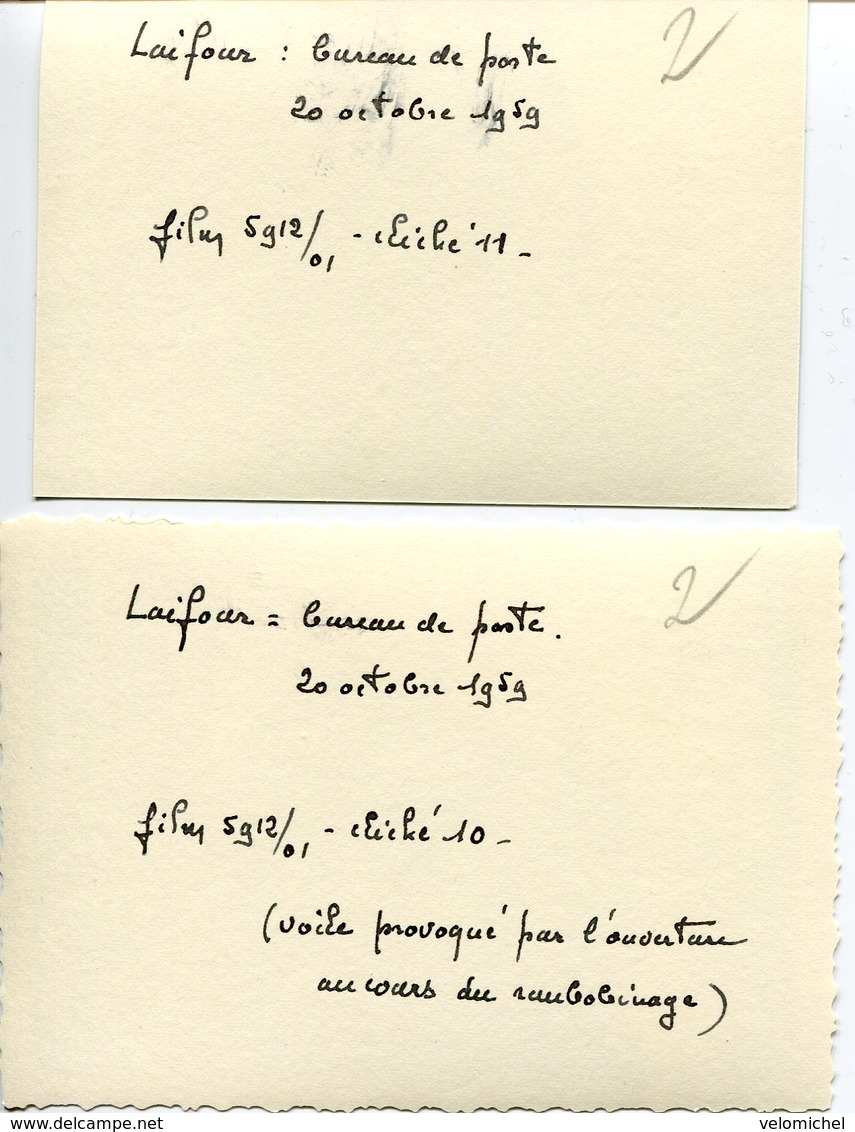 Laifour : bureau de poste
2
20 octobre 1959
film 5912/01 - cliché 11 -
Laifour = bureau de poste.
2
20 octobre 1959
film 5912/01 - cliché 10 -
(voile provoqué par l'ouverture
au cours du rembobinage)
www.delcampe.net
velomichel